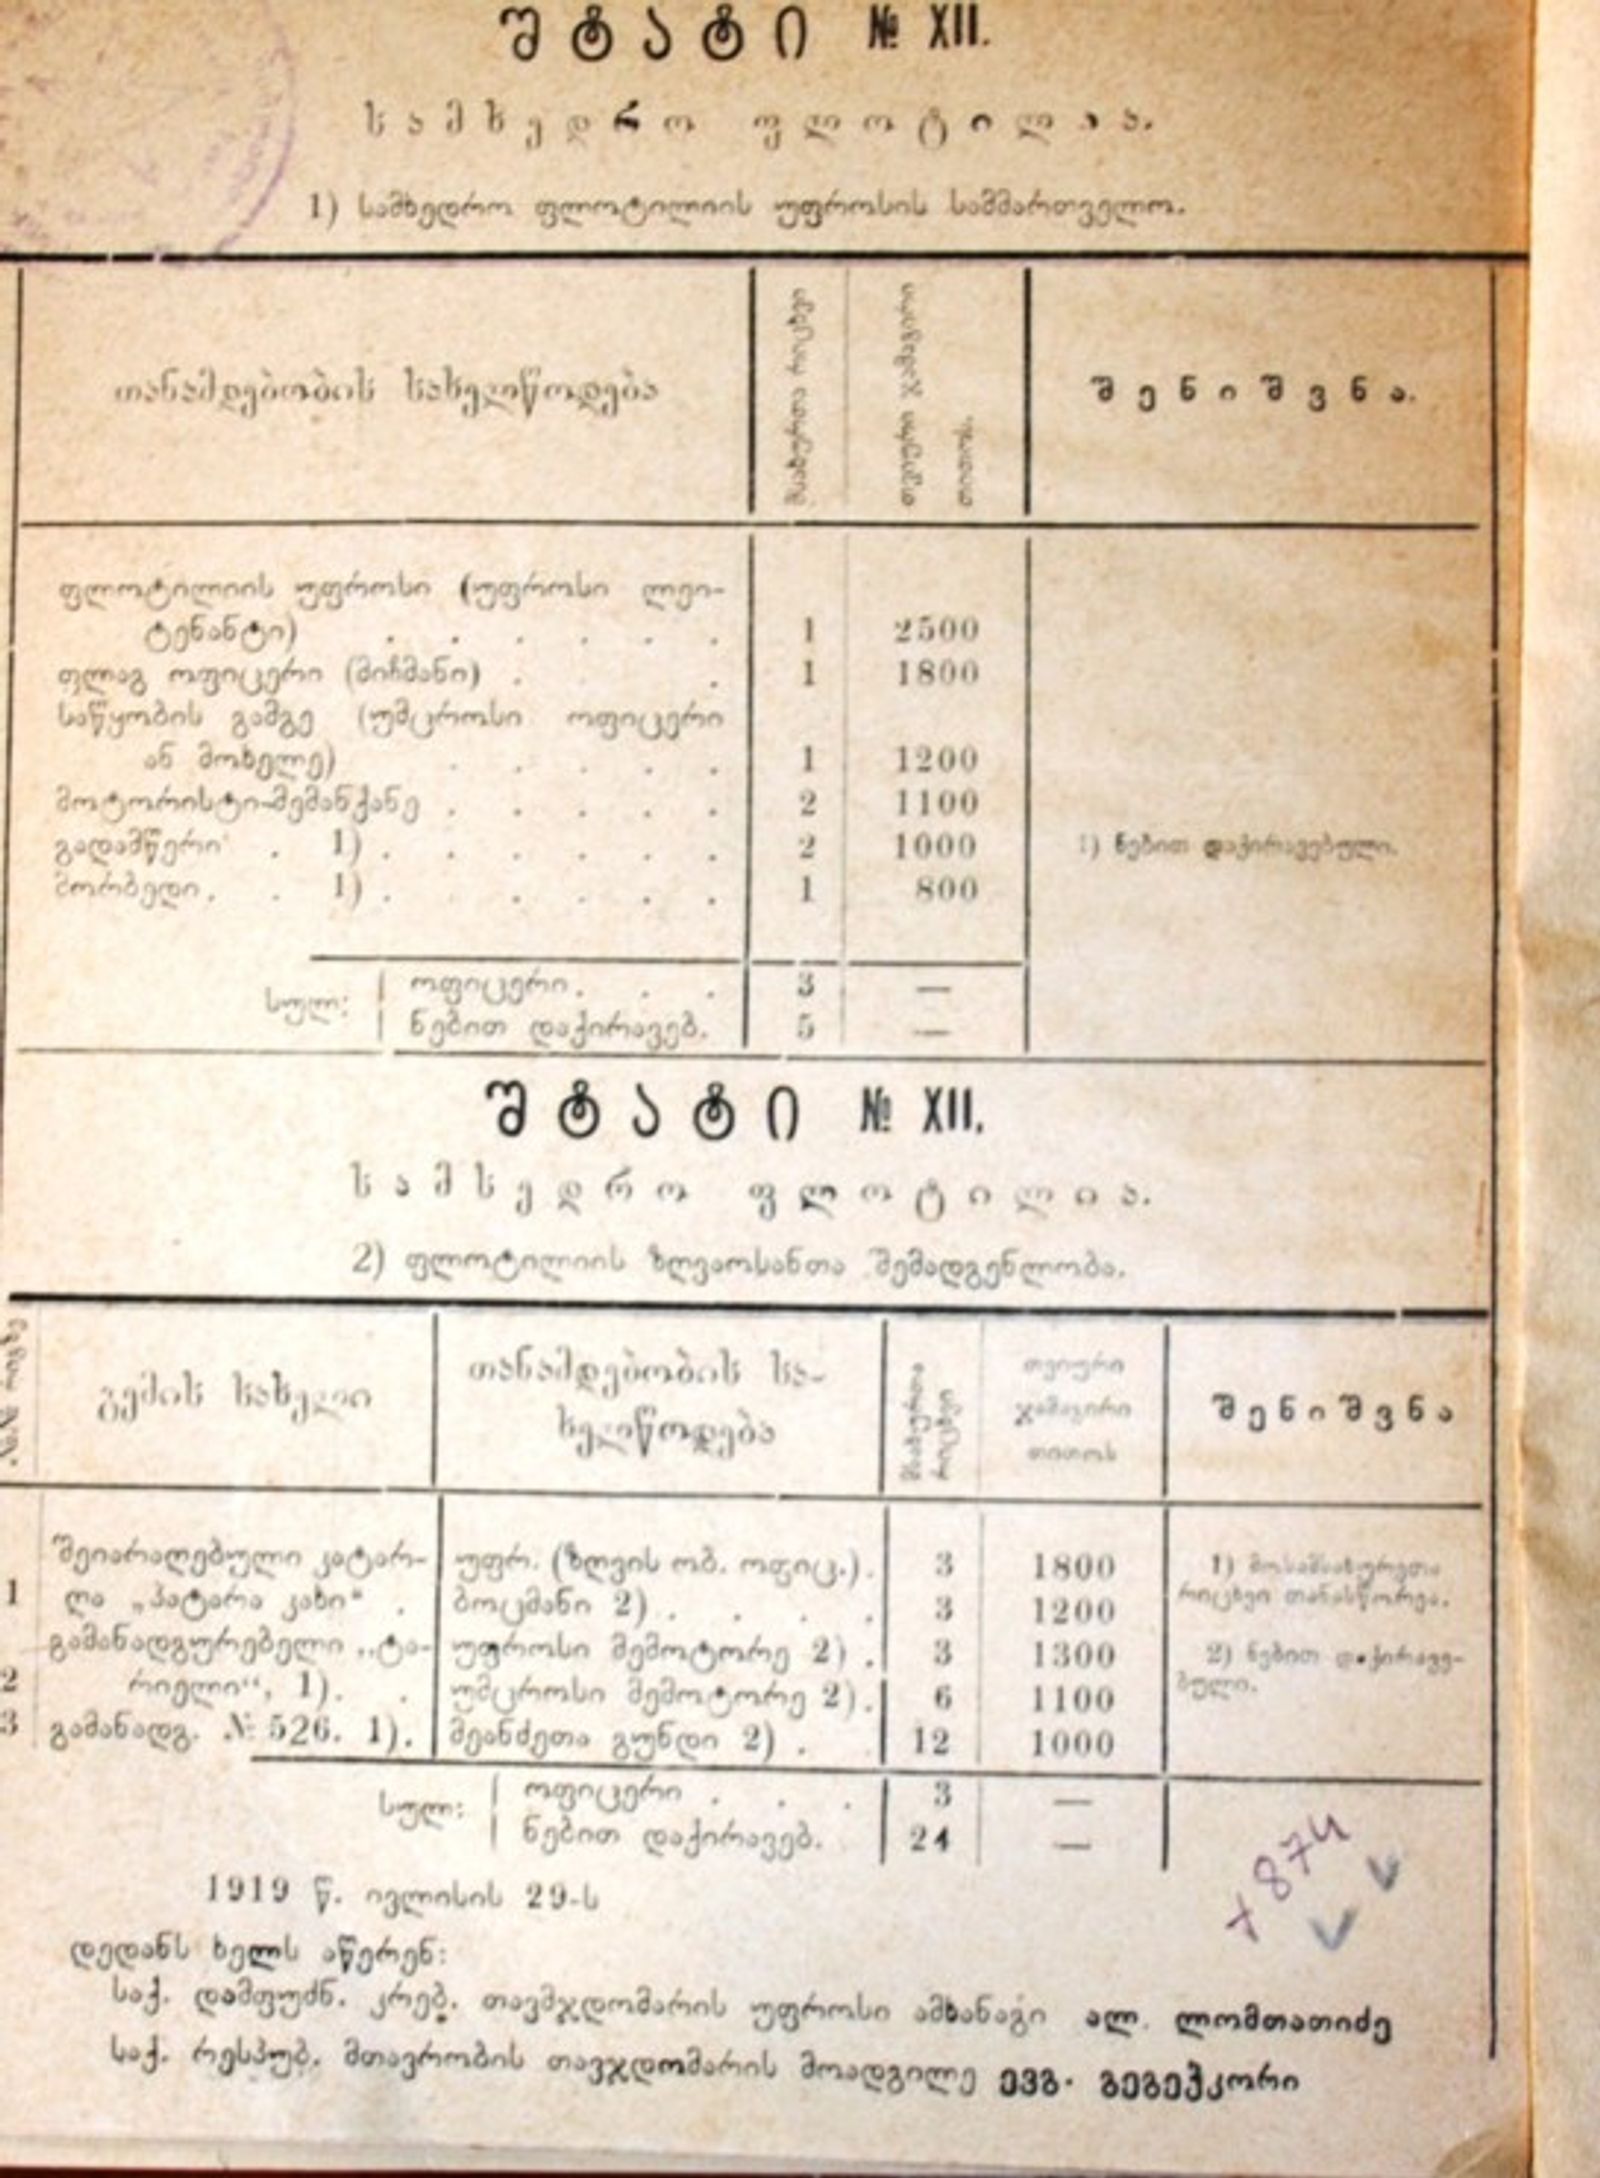 შტატი № XII.
სამხედრო ფლოტილია.
1) სამხედრო ფლოტილიის უფროსის სამმართველო.
თანამდებობის სახელწოდება
შენიშვნა.
ფლოტილიის უფროსი (უფროსი ლეი-
ტენანტი) . . . . . . 1 2500
ფლაგ ოფიცერი (მიჩმანი) . . 1 1800
საწყობის გამგე (უმცროსი ოფიცერი
ან მოხელე) . . . . . 1 1200
მოტორისტი-მემანქანე . . . . . 2 1100
გადამწერი . 1) . . . . . . 2 1000 1) ნებით დაქირავებული.
მორბედი. . 1) . . . . . 1 800
სულ: ოფიცერი. . . 3 —
ნებით დაქირავებ. 5 —
შტატი № XII.
სამხედრო ფლოტილია.
2) ფლოტილიის ზღვაოსანთა შემადგენლობა.
გემის სახელი
თანამდებობის სა-
ხელწოდება
თვიური
ჯამაგირი
თითოს
შენიშვნა
შეიარაღებული კატარ-
1 ღა „პატარა კახი“ .
გამანადგურებელი „ტა-
2 რიელი“, 1). .
3 გამანადგ. № 526. 1).
უფრ. (ზღვის ობ. ოფიც.). 3 1800
ბოცმანი 2) . . . . 3 1200
უფროსი მემოტორე 2) . 3 1300
უმცროსი მემოტორე 2). 6 1100
მეანძეთა გუნდი 2) . 12 1000
1) მოსამსახურეთა
რიცხვი თანასწორეა.
2) ნებით დაქირავე-
ბული.
სულ: ოფიცერი . . . 3 —
ნებით დაქირავებ. 24 —
+ 874
1919 წ. ივლისის 29-ს
დედანს ხელს აწერენ:
საქ. დამფუძნ. კრებ. თავმჯდომარის უფროსი ამხანაგი ალ. ლომთათიძე
საქ. რესპუბ. მთავრობის თავჯდომარის მოადგილე ევგ. გეგეჭკორი